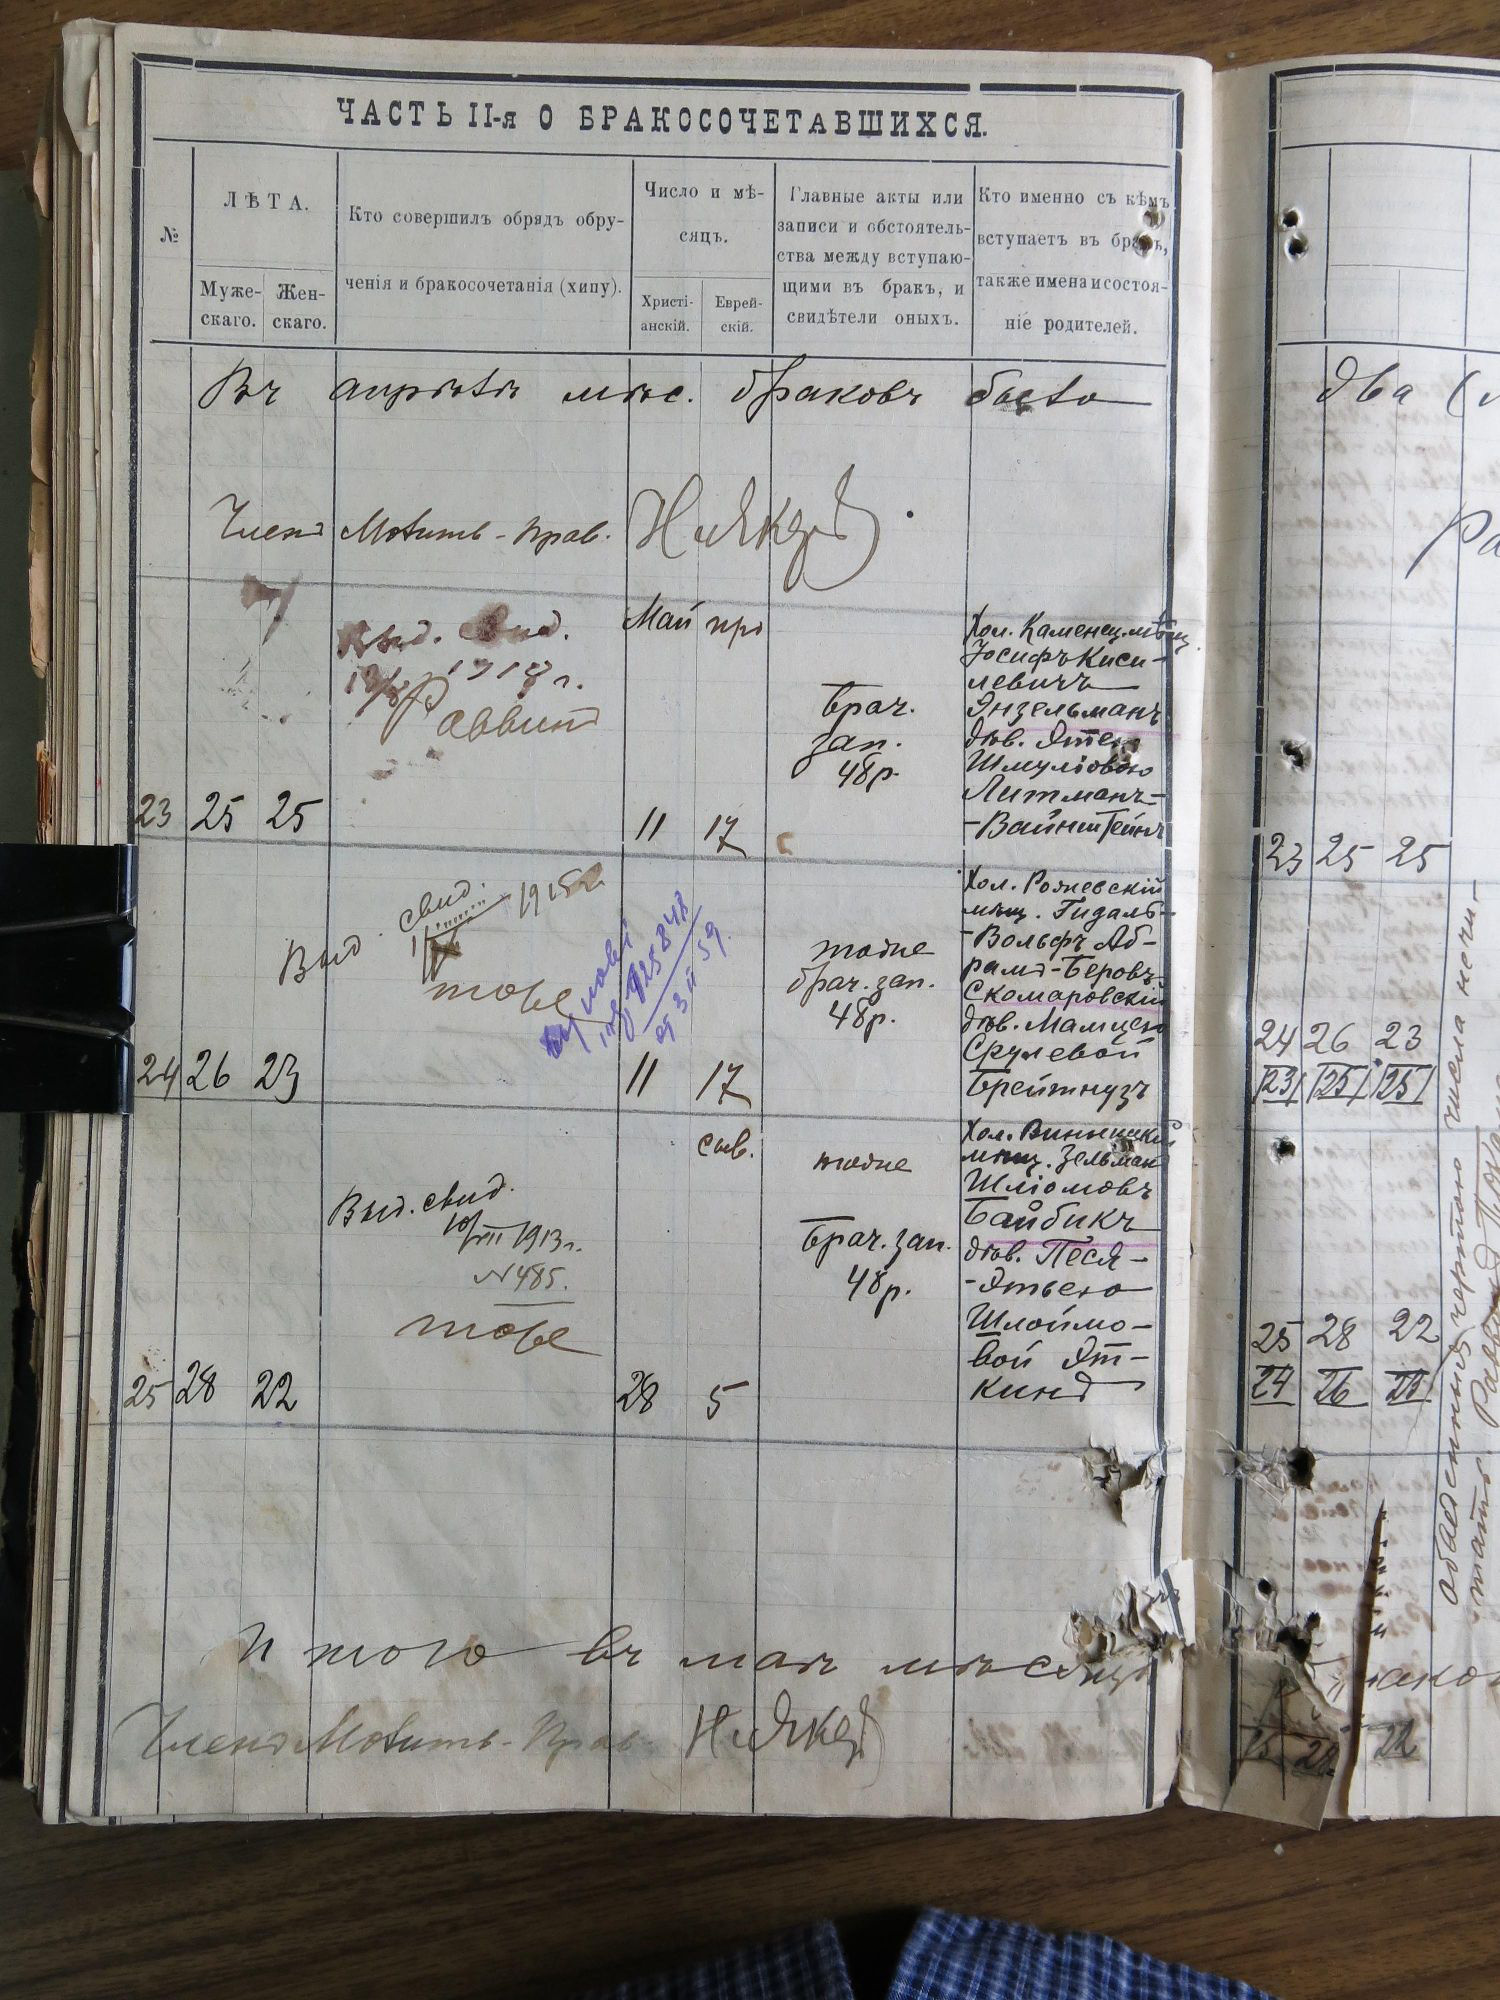 ЧАСТЬ II-я О БРАКОСОЧЕТАВШИХСЯ.
№
ЛѢТА.
Муже-
скаго.
Жен-
скаго.
Кто совершилъ обрядъ обру-
ченія и бракосочетанія (хипу).
Число и мѣ-
сяцъ.
Христі-
анскій.
Еврей-
скій.
Главные акты или
записи и обстоятель-
ства между вступаю-
щими въ бракъ, и
свидѣтели оныхъ.
Кто именно съ кѣмъ
вступаетъ въ бракъ,
также имена и состоя-
ніе родителей.
Въ апрѣлѣ мѣс. браковъ было
два
Членъ Молитв-Прав.
Выд. свид.
1913 г.
Раввинъ
Май
Брач.
зап.
48р.
Хол. Каменец. мѣщ
Іосифъ Киси-
левичъ
Янзельманъ
дѣв. Ятею
Шмуліовою
Литманъ-
-Вайнштейнъ
23 25 25 11 17
Выд. свид. 1915
тоже
3 II 59.
тоже
брач. зап.
48р.
Хол. Рояневскій
мѣщ. Гидаль-
-Вольфъ Аб-
рамъ-Беровъ
Скомаровскій
дѣв. Мамцею
Срулевой
Брейтнузъ
24 26 23 11 17
Выд. свид.
10/VII 1913г.
№ 485.
тоже
сив.
тоже
Брач. зап.
48р.
Хол. Винькшкій
мѣщ. Зельман
Шліомовъ
Байбикъ
дѣв. Песя-
-Ятьею
Шлоймо-
вой Ят-
кинъ
25 28 22 28 5
Итого въ маѣ мѣсяцѣ
Членъ Молитв-Прав.
23 25 25
24 26 23
23 25 25
25 28 22
24 26 23
22